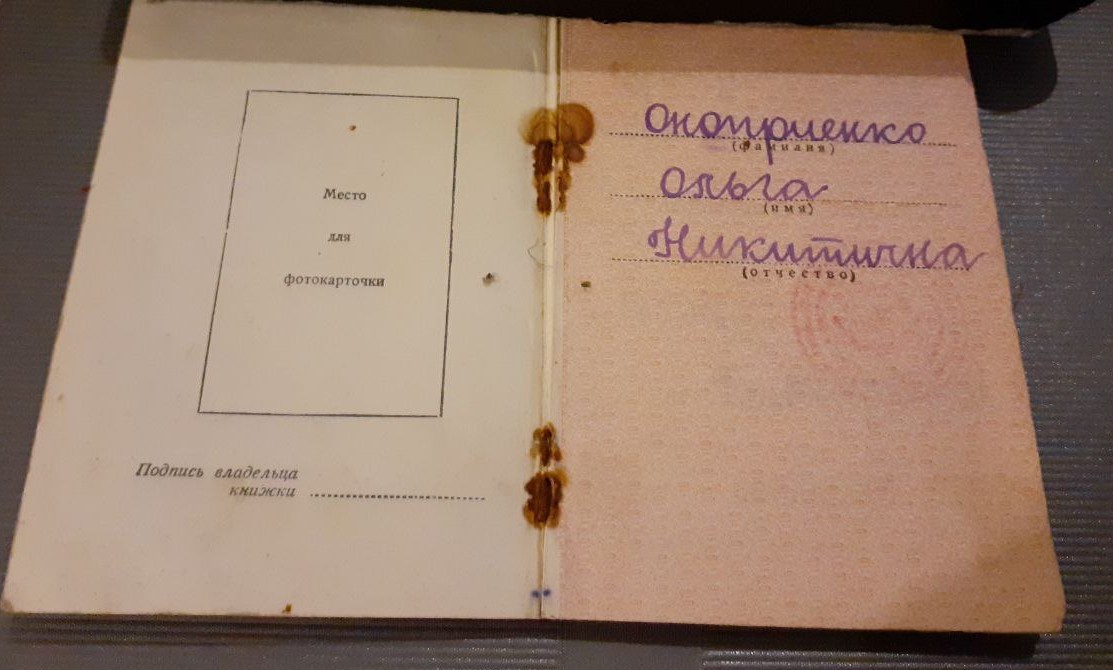 Место
для
фотокарточки
Подпись владельца
книжки
Оноприенко
(фамилия)
Ольга
(имя)
Никитична
(отчество)